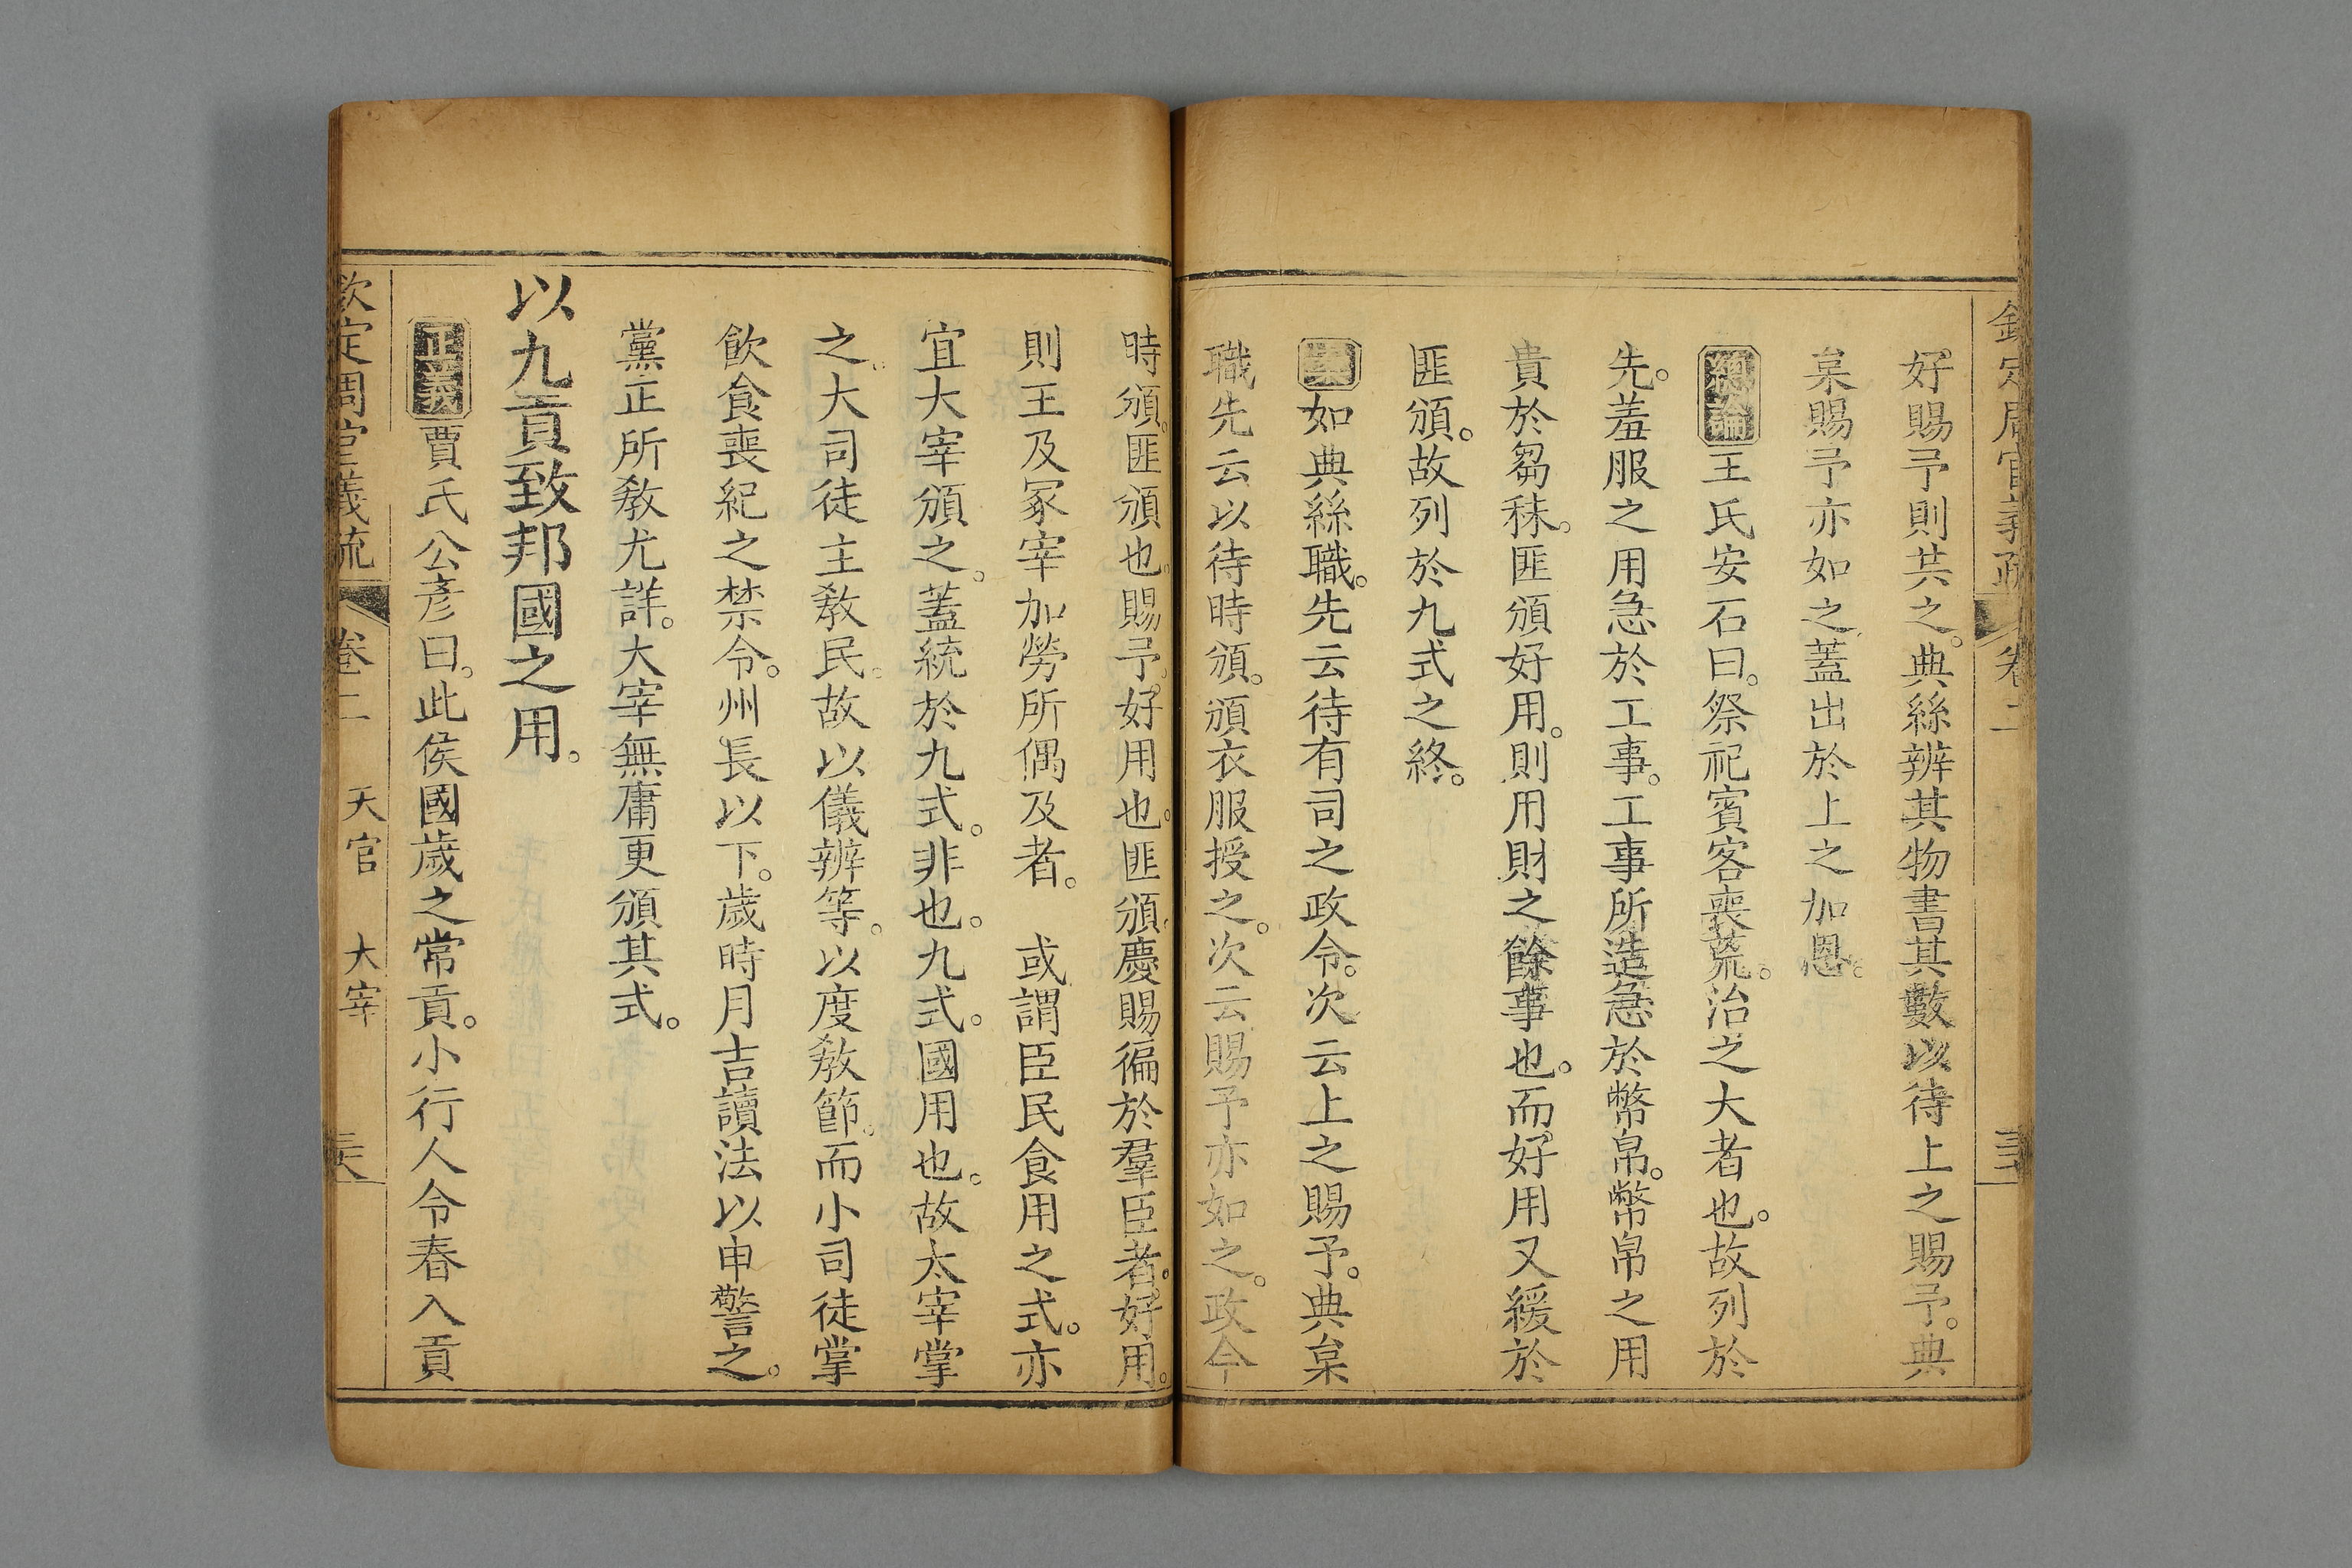 欽定周官義疏 卷二
好賜予則共之。典絲辨其物書其數以待上之賜予。典
枲賜予亦如之蓋出於上之加恩。
總論王氏安石曰。祭祀賓客喪荒。治之大者也。故列於
先。羞服之用急於工事。工事所造急於幣帛。幣帛之用
貴於芻秣。匪頒好用。則用財之餘事也。而好用又緩於
匪頒。故列於九式之終。
案如典絲職。先云待有司之政令。次云上之賜予。典枲
職先云以待時頒。頒衣服授之。次云賜予亦如之。政令
時頒。匪頒也。賜予。好用也。匪頒。慶賜徧於羣臣者。好用。
則王及冢宰加勞所偶及者。 或謂臣民食用之式。亦
宜大宰頒之。蓋統於九式。非也。九式。國用也。故太宰掌
之。大司徒主敎民。故以儀辨等。以度敎節。而小司徒掌
飲食喪紀之禁令。州長以下。歲時月吉讀法以申警之。
黨正所敎尤詳。大宰無庸更頒其式。
以九貢致邦國之用。
正義賈氏公彥曰。此侯國歲之常貢。小行人令春入貢
欽定周官義疏 卷二 天官 大宰